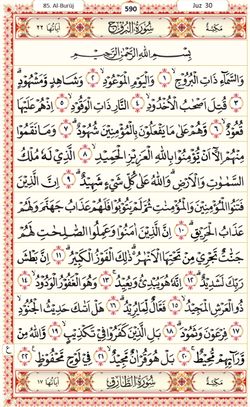 85. Al-Burūj
590
Juz 30
مَكِّيَّة سُوْرَةُ الْبُرُوْجِ اٰيَاتُهَا ٢٢
بِسْمِ اللّٰهِ الرَّحْمٰنِ الرَّحِيْمِ
وَالسَّمَآءِ ذَاتِ الْبُرُوْجِۙ ١ وَالْيَوْمِ الْمَوْعُوْدِۙ ٢ وَشَاهِدٍ وَّمَشْهُوْدٍۗ
٣ قُتِلَ اَصْحٰبُ الْاُخْدُوْدِۙ ٤ النَّارِ ذَاتِ الْوَقُوْدِۙ ٥ اِذْ هُمْ عَلَيْهَا
قُعُوْدٌۙ ٦ وَّهُمْ عَلٰى مَا يَفْعَلُوْنَ بِالْمُؤْمِنِيْنَ شُهُوْدٌۗ ٧ وَمَا نَقَمُوْا
مِنْهُمْ اِلَّآ اَنْ يُّؤْمِنُوْا بِاللّٰهِ الْعَزِيْزِ الْحَمِيْدِۙ ٨ الَّذِيْ لَهٗ مُلْكُ
السَّمٰوٰتِ وَالْاَرْضِۗ وَاللّٰهُ عَلٰى كُلِّ شَيْءٍ شَهِيْدٌۗ ٩ اِنَّ الَّذِيْنَ
فَتَنُوا الْمُؤْمِنِيْنَ وَالْمُؤْمِنٰتِ ثُمَّ لَمْ يَتُوْبُوْا فَلَهُمْ عَذَابُ جَهَنَّمَ وَلَهُمْ
عَذَابُ الْحَرِيْقِۗ ١٠ اِنَّ الَّذِيْنَ اٰمَنُوْا وَعَمِلُوا الصّٰلِحٰتِ لَهُمْ
جَنّٰتٌ تَجْرِيْ مِنْ تَحْتِهَا الْاَنْهٰرُۗ ذٰلِكَ الْفَوْزُ الْكَبِيْرُۗ ١١ اِنَّ بَطْشَ
رَبِّكَ لَشَدِيْدٌۗ ١٢ اِنَّهٗ هُوَ يُبْدِئُ وَيُعِيْدُۚ ١٣ وَهُوَ الْغَفُوْرُ الْوَدُوْدُۙ ١٤
ذُو الْعَرْشِ الْمَجِيْدُۙ ١٥ فَعَّالٌ لِّمَا يُرِيْدُۗ ١٦ هَلْ اَتٰىكَ حَدِيْثُ الْجُنُوْدِۙ
١٧ فِرْعَوْنَ وَثَمُوْدَۗ ١٨ بَلِ الَّذِيْنَ كَفَرُوْا فِيْ تَكْذِيْبٍۙ ١٩ وَّاللّٰهُ مِنْ
وَّرَاۤىِٕهِمْ مُّحِيْطٌۚ ٢٠ بَلْ هُوَ قُرْاٰنٌ مَّجِيْدٌۙ ٢١ فِيْ لَوْحٍ مَّحْفُوْظٍ ٢٢
ع
مَكِّيَّة سُوْرَةُ الطَّارِقِ اٰيَاتُهَا ١٧